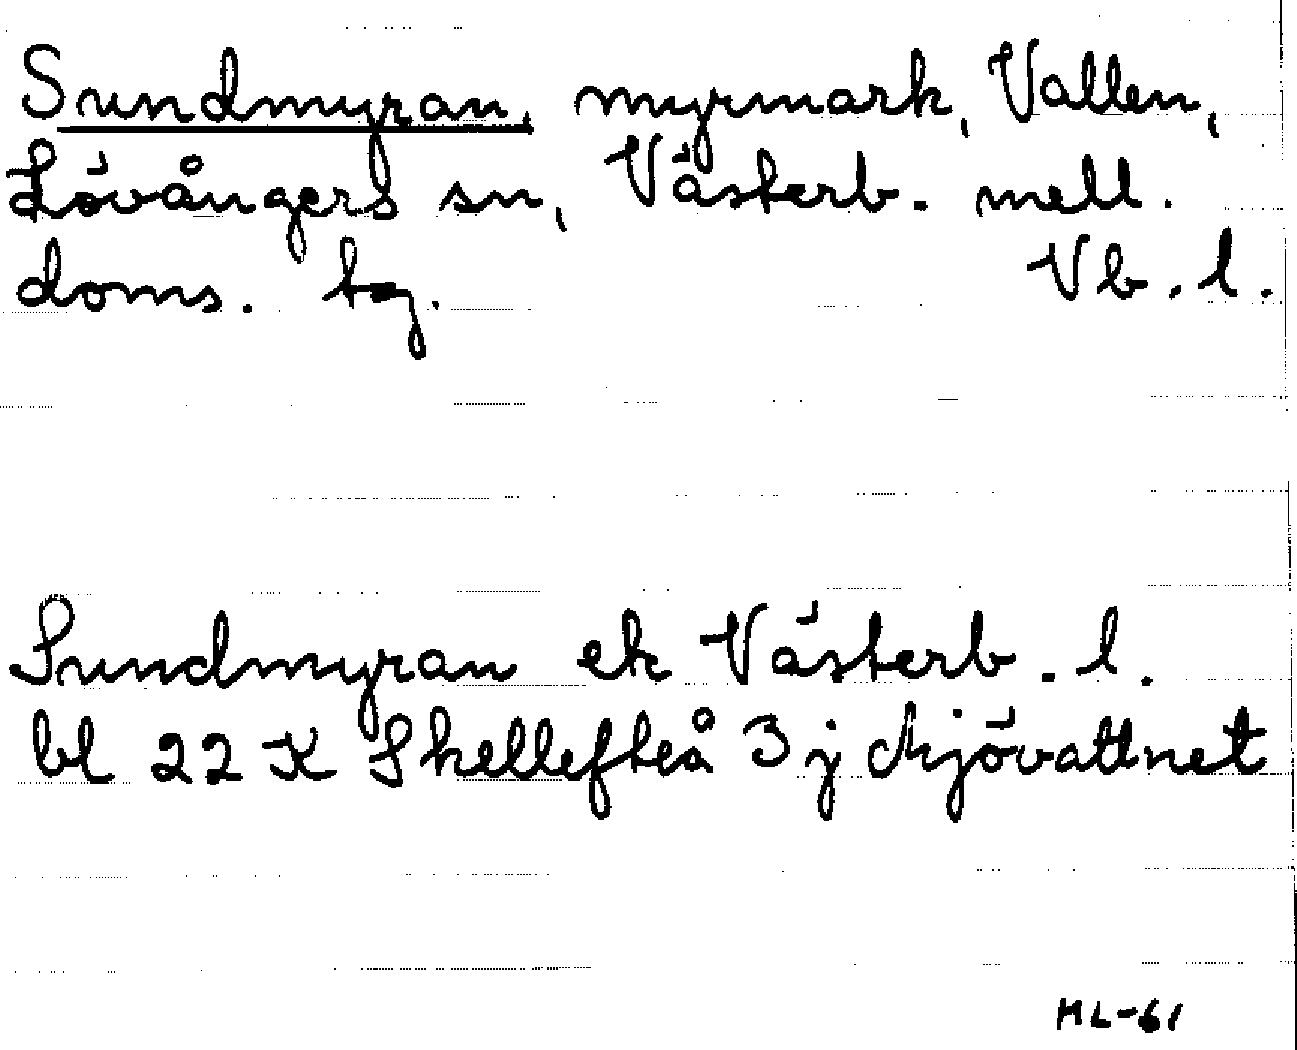 Sundmyran, myrmark, Vallen,
Lövångers sn, Västerb. mell.
doms. tg. Vb. l.
Sundmyran ek Västerb. l.
bl 22 K Skellefteå 3 j Mjövattnet
ML-61